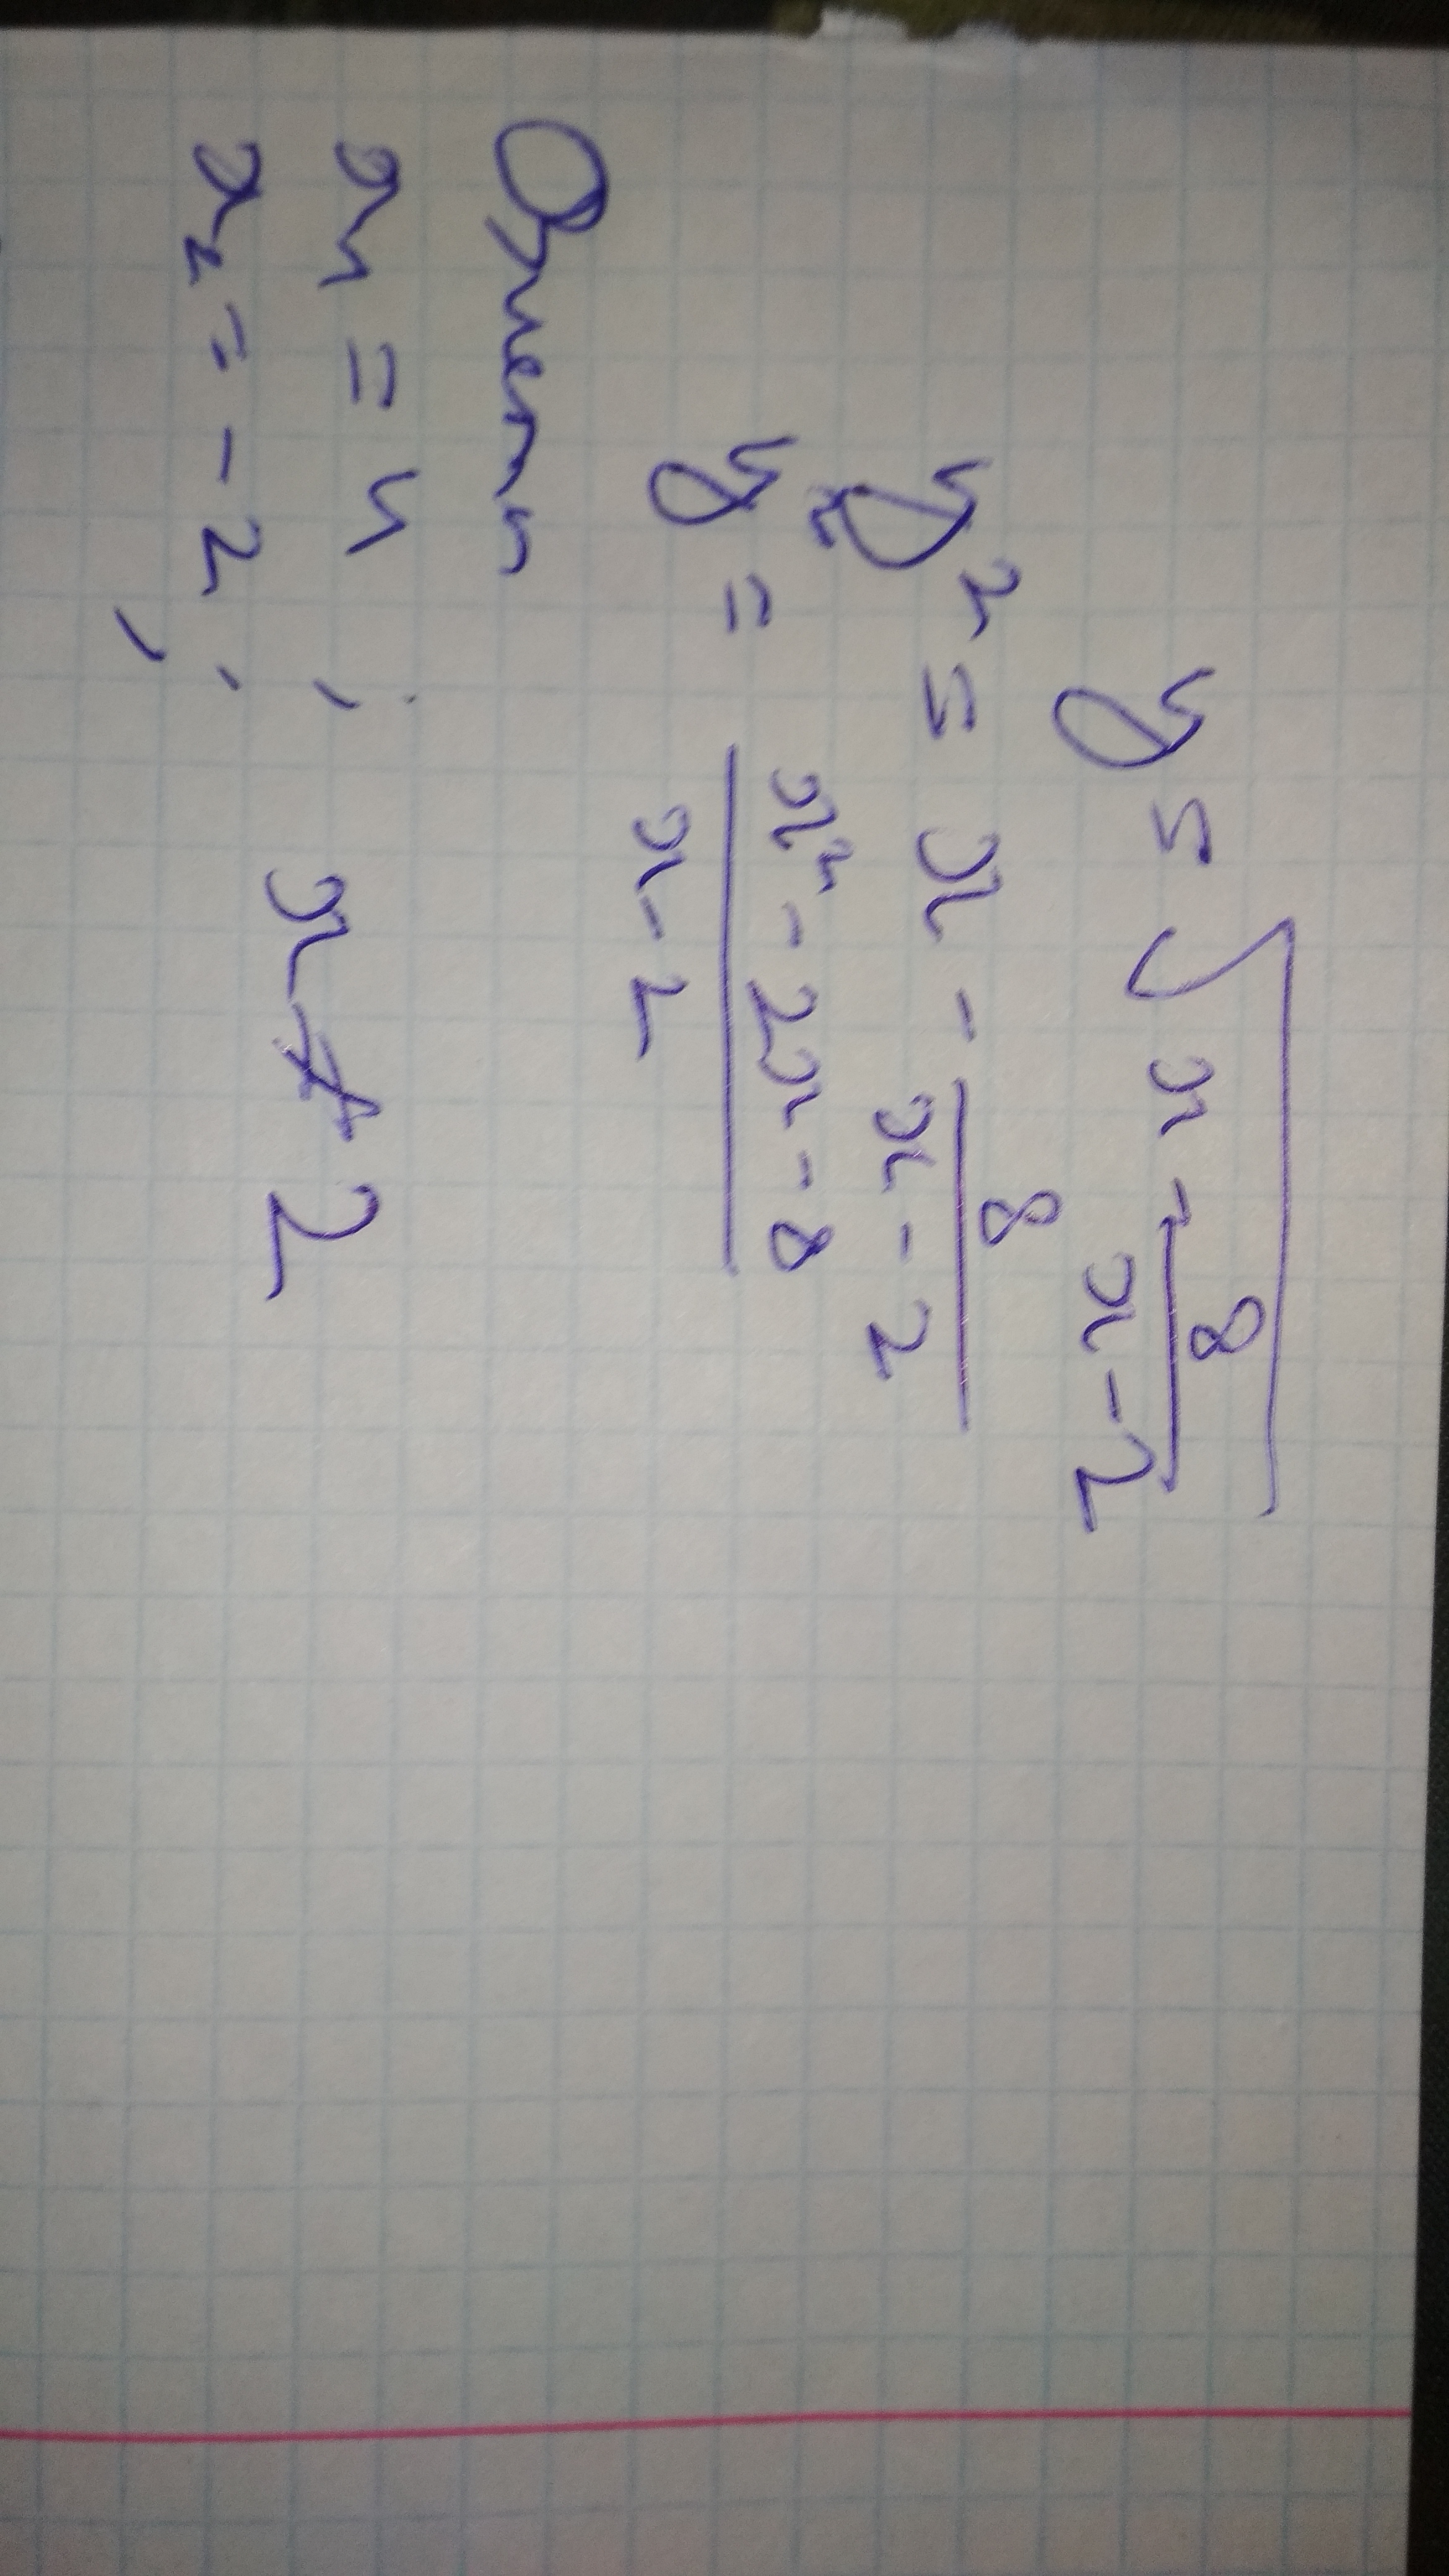 y = √(x - 8/(x - 2))
y² = x - 8/(x - 2)
y² = (x² - 2x - 8)/(x - 2)
Ответ
x₁ = 4;
x₂ = -2; x ≠ 2